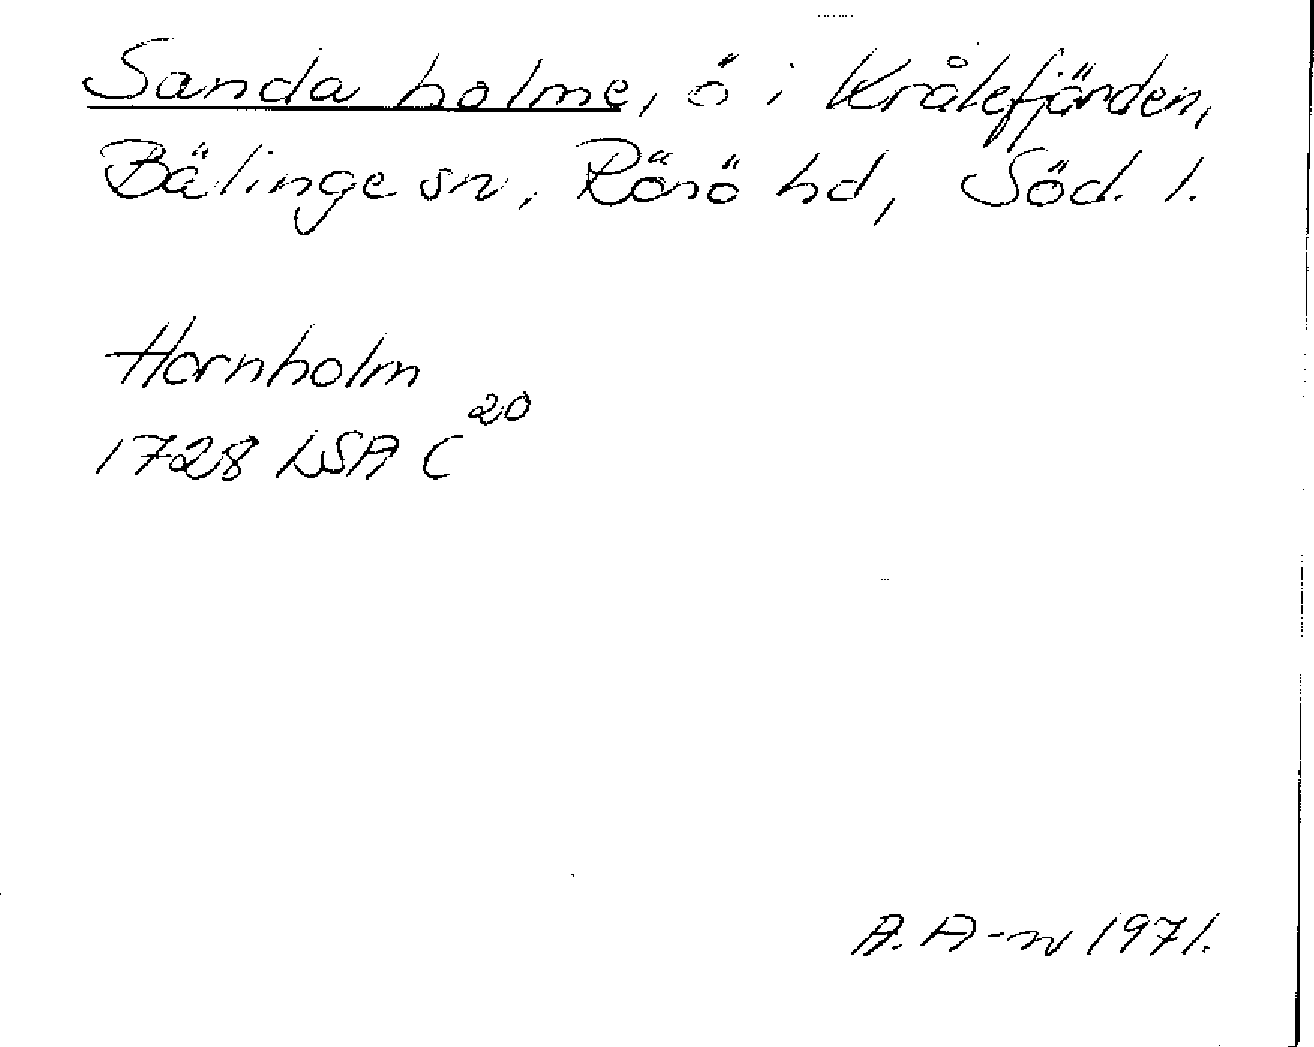 Sanda holme, ö i Krålefjärden,
Bälinge sn, Rönö hd, Söd. l.
Hornholm
1728 LSA C 20
A. A-n 1971.